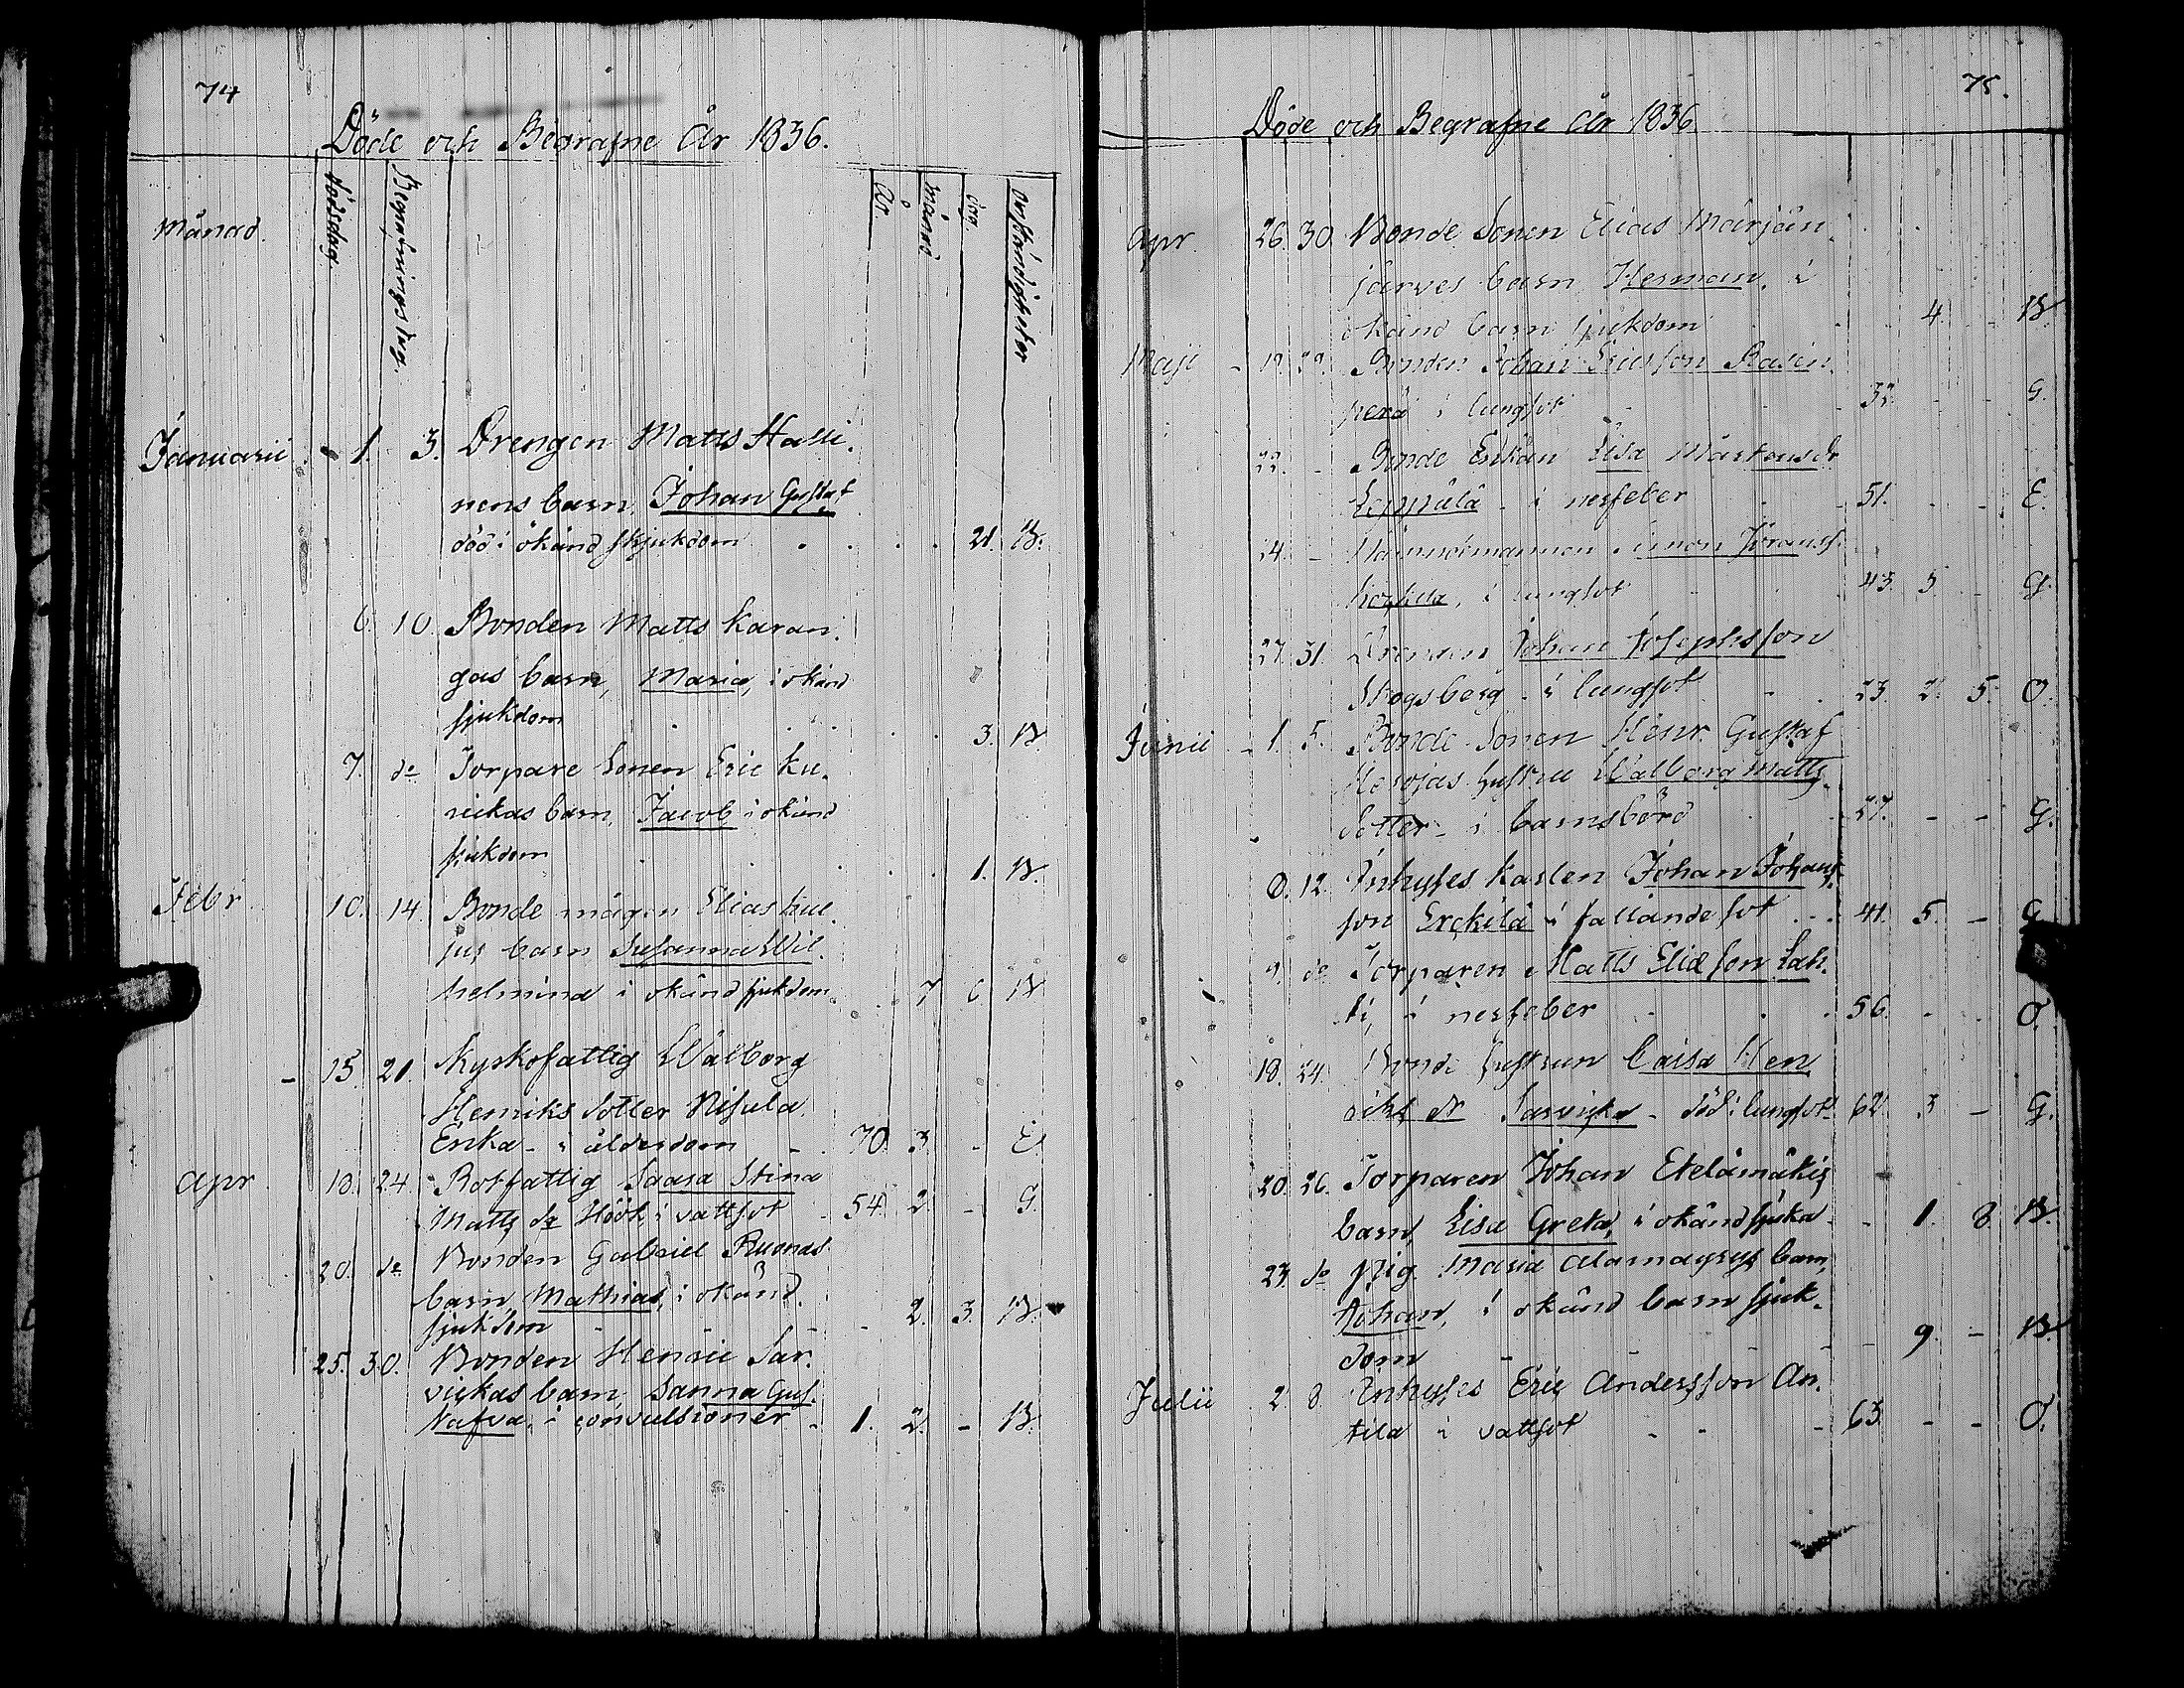 74
Döde och Begrafne År 1836.
Månad.
dödsdag.
Begrafnings dag.
År.
månad
dag.
omständigheter
Januarii 1. 3. Drengen Matts Halli.
nens barn, Johan Gustaf
död i okänd sjukdom . . . . 21. B.
6. 10. Bonden Matts Karan.
gas barn, Maria, i okänd
sjukdom . . . . 3. B.
7. do Torpare Sonen Eric Ku.
nickas barn, Jacob i okänd
sjukdom . . . . 1. B.
Febr 10. 14. Bonde mågen Elias
jus barn Susanna Wil.
helmina i okänd sjukdom. . 7 6 B
15 21. Kyrkofattig Walborg
Henriks dotter Nisula
Enka - i ålderdom - 70. 3. - E.
Apr 18. 24 Rotfattig Saara Stina
Matts dr Höök i vattsot - 54. 2. - G.
20. do Bonden Gabriel Ruonas
barn, Mathias, i okänd
sjukdom - - - - 2. 3. B.
25. 30. Bonden Henric Sar.
vickas barn, Sanna Gus.
tafva, i convulsioner - 1. 2. - B.
75.
Döde och Begrafne År 1836.
Apr. 26. 30 Bonde Sonen Elias Märjän.
järves barn, Herman, i
okänd barn sjukdom 4. - B
Maji - Bonden Johan Ericsson Rasin.
perä i lungsot - G.
22. - Bonde Enkan Lisa Mårtens dr
Leppälä - i nerfeber 51. - - E.
24. - Nämndemannen Simon Göranss.
, i lungsot 43. 5. - G.
27. 31. Drengen Johan Josephsson
Skogsberg - i lungsot - 23. 2. 5. O.
Junii - 1. 5. Bonde Sonen Henr. Gustaf
hustru Walborg Matts.
dotter - i barnsbörd 27. - - G.
12. Inhyses Karlen Johan Johans.
son Erckilä i fallandesot . . . 41. 5. - G
9. do Torparen Matts Eliæ son Lah.
ti, i nerfeber . 56. . . O.
18. 24. Bonde hustrun Caisa Hen
dr Sarvicka - död i lungsot 62. 3 - G.
20. 26. Torparen Johan Etelämäkis
barn, Lisa Greta, i okänd sjuka - - 1. 8 B.
23. do pig. Maria Alamayrys barn,
Johan, i okänd barn sjuk.
dom - - 9. - B
Julii 2. 8. Inhyses Eric Andersson An.
tila i vattsot - - - 63. - - O.